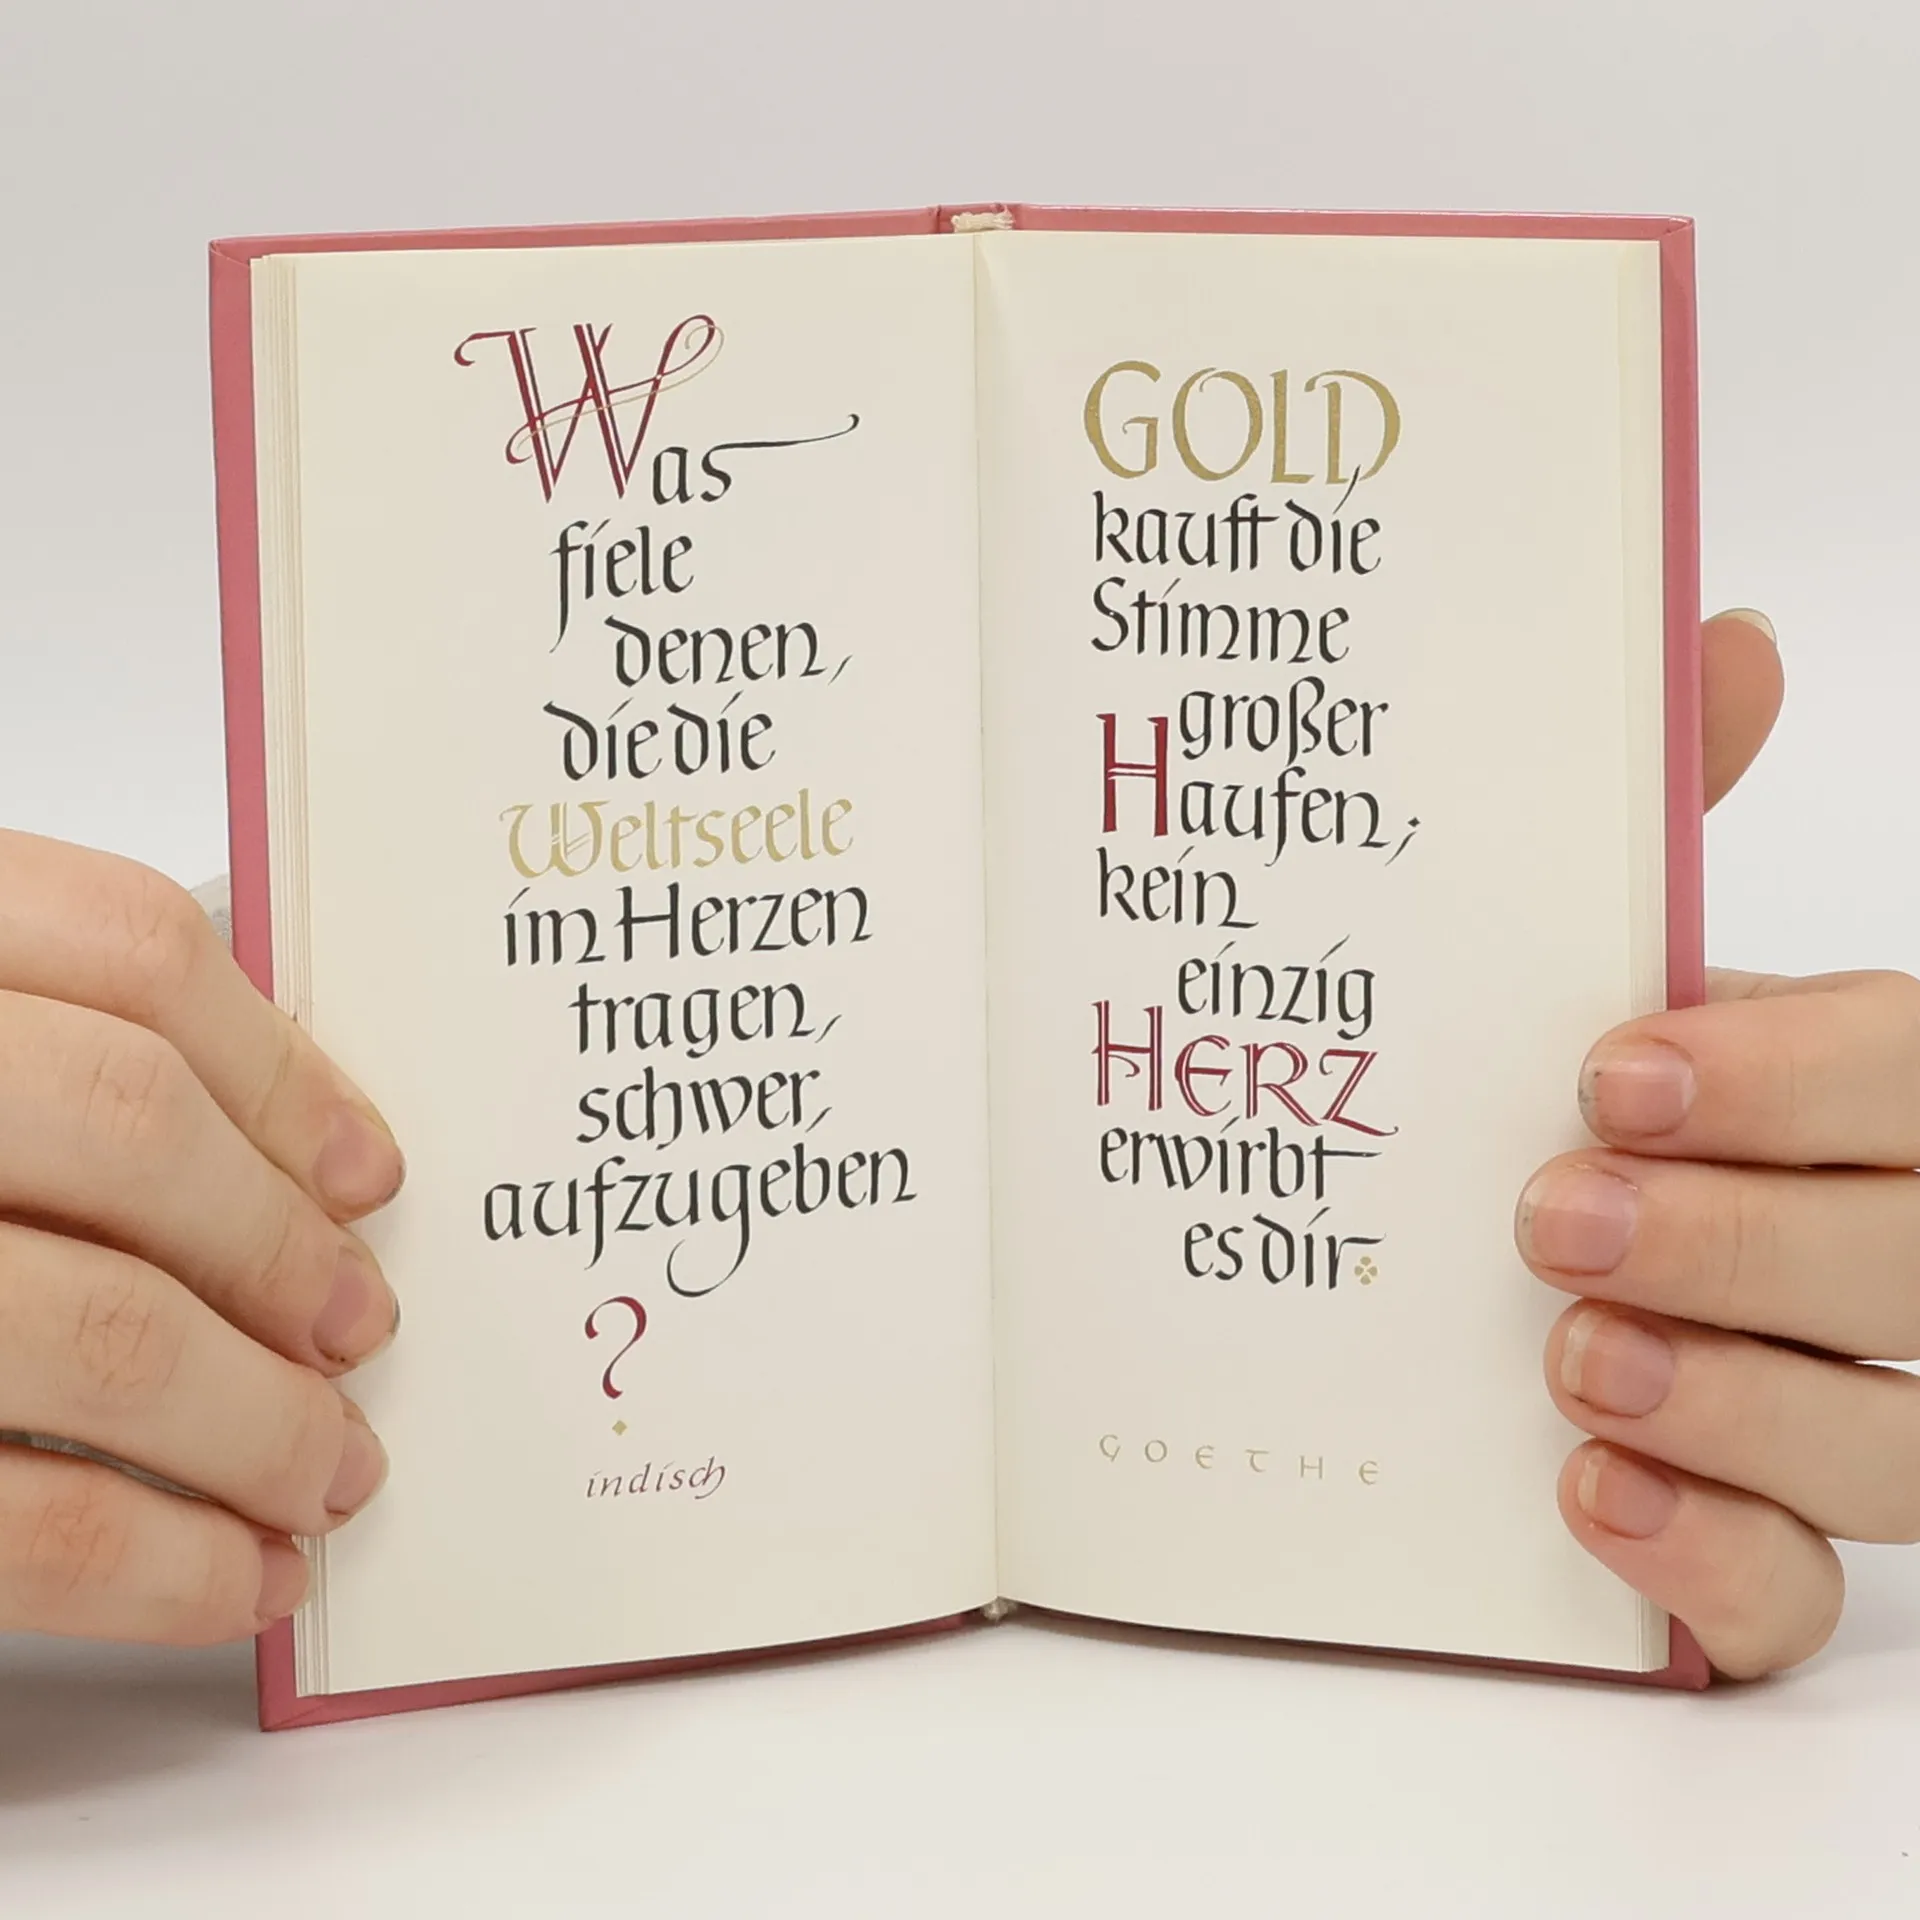 Was
fiele
denen,
die die
Weltseele
im Herzen
tragen,
schwer,
aufzugeben
?
indisch
GOLD
kauft die
Stimme
großer
Haufen;
kein
einzig
HERZ
erwirbt
es dir.
GOETHE